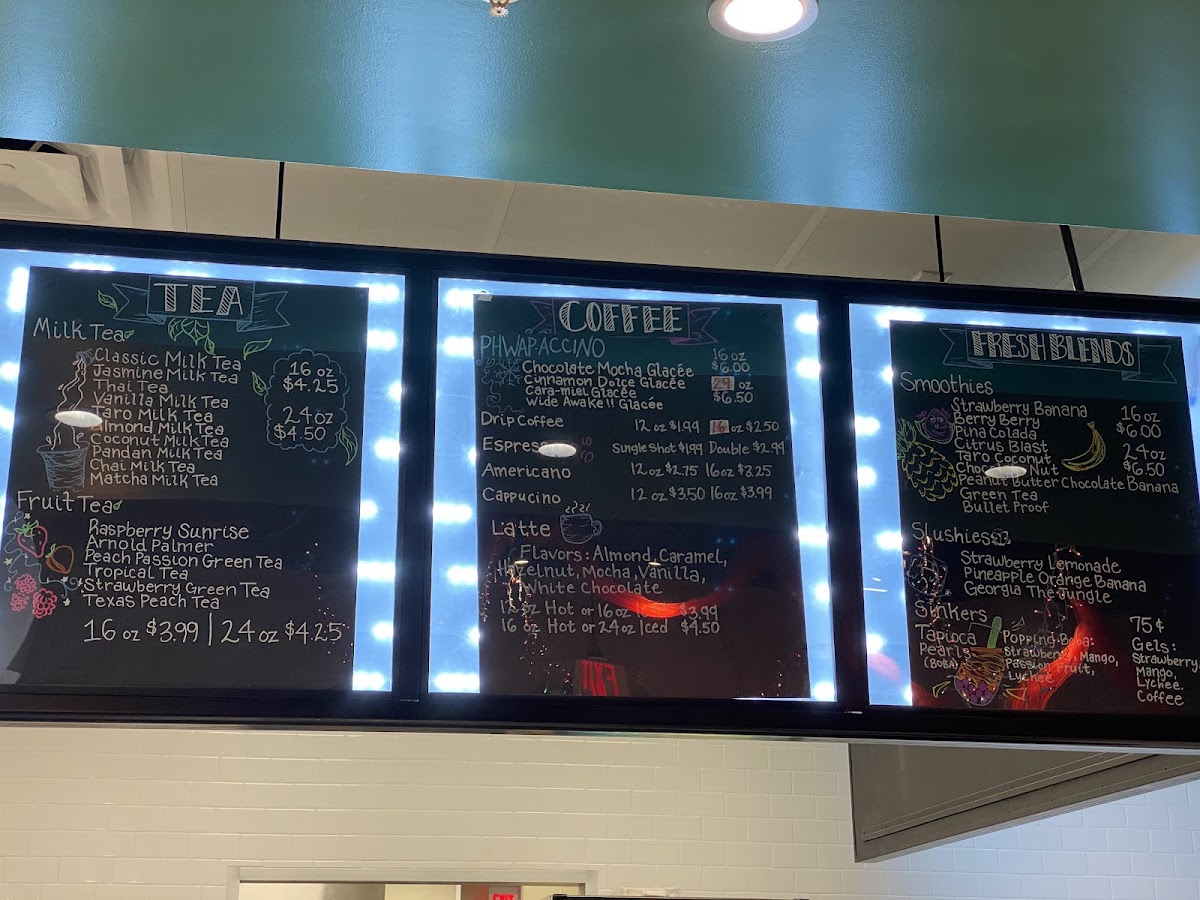 TEA
Milk Tea
Classic Milk Tea
Jasmine Milk Tea
Thai Tea
Vanilla Milk Tea
Taro Milk Tea
Almond Milk Tea
Coconut Milk Tea
Pandan Milk Tea
Chai Milk Tea
Matcha Milk Tea
16 oz
$4.25
24 oz
$4.50
Fruit Tea
Raspberry Sunrise
Arnold Palmer
Peach Passion Green Tea
Tropical Tea
Strawberry Green Tea
Texas Peach Tea
16 oz $3.99 | 24 oz $4.25
COFFEE
PHWAPACCINO
Chocolate Mocha Glacée
Cinnamon Dolce Glacée
Cara-miel Glacée
Wide Awake!! Glacée
16 oz
$6.00
24 oz
$6.50
Drip Coffee 12 oz $1.99 16 oz $2.50
Espresso Single Shot $1.99 Double $2.99
Americano 12 oz $2.75 16 oz $3.25
Cappucino 12 oz $3.50 16 oz $3.99
Latte
Flavors: Almond, Caramel,
Hazelnut, Mocha, Vanilla,
White Chocolate
12 oz Hot or 16 oz $3.99
16 oz Hot or 24 oz Iced $4.50
EXIT
FRESH BLENDS
Smoothies
Strawberry Banana
Berry Berry
Pina Colada
Citrus Blast
Taro Coconut
Chocolate Nut
Peanut Butter Chocolate Banana
Green Tea
Bullet Proof
16 oz
$6.00
24 oz
$6.50
Slushies
Strawberry Lemonade
Pineapple Orange Banana
Georgia The Jungle
Sinkers
75¢
Tapioca
Pearls
(BOBA)
Popping Boba:
Strawberry, Mango,
Passion Fruit,
Lychee
Gels:
Strawberry
Mango,
Lychee.
Coffee
EXIT